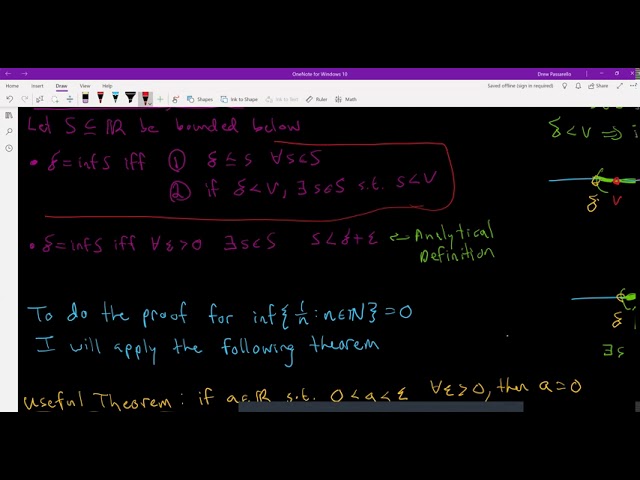 OneNote for Windows 10
Drew Passarello
File Home Insert Draw View Help
Saved offline (sign in required)
Shapes Ink to Shape Ink to Text Ink to Math
Let S ⊆ ℝ be bounded below
• δ = inf S iff ① δ ≤ s ∀s∈S
② if δ < V, ∃ s∈S s.t. s < V
• δ = inf S iff ∀ε>0 ∃s∈S S < δ + ε ← Analytical Definition
δ < V ⇒
δ V
To do the proof for inf{1/n : n∈ℕ} = 0
I will apply the following theorem
δ
∃s
Useful Theorem : if a∈ℝ s.t. 0 < a < ε ∀ε>0, then a = 0